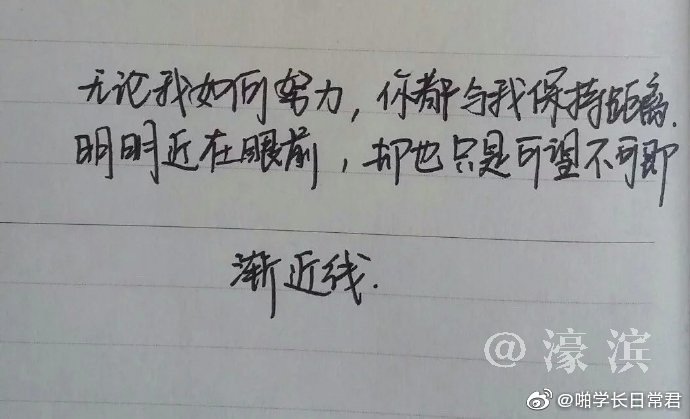 无论我如何努力，你都与我保持距离.
明明近在眼前，却也只是可望不可即
渐近线.
@濠滨
@啪学长日常君